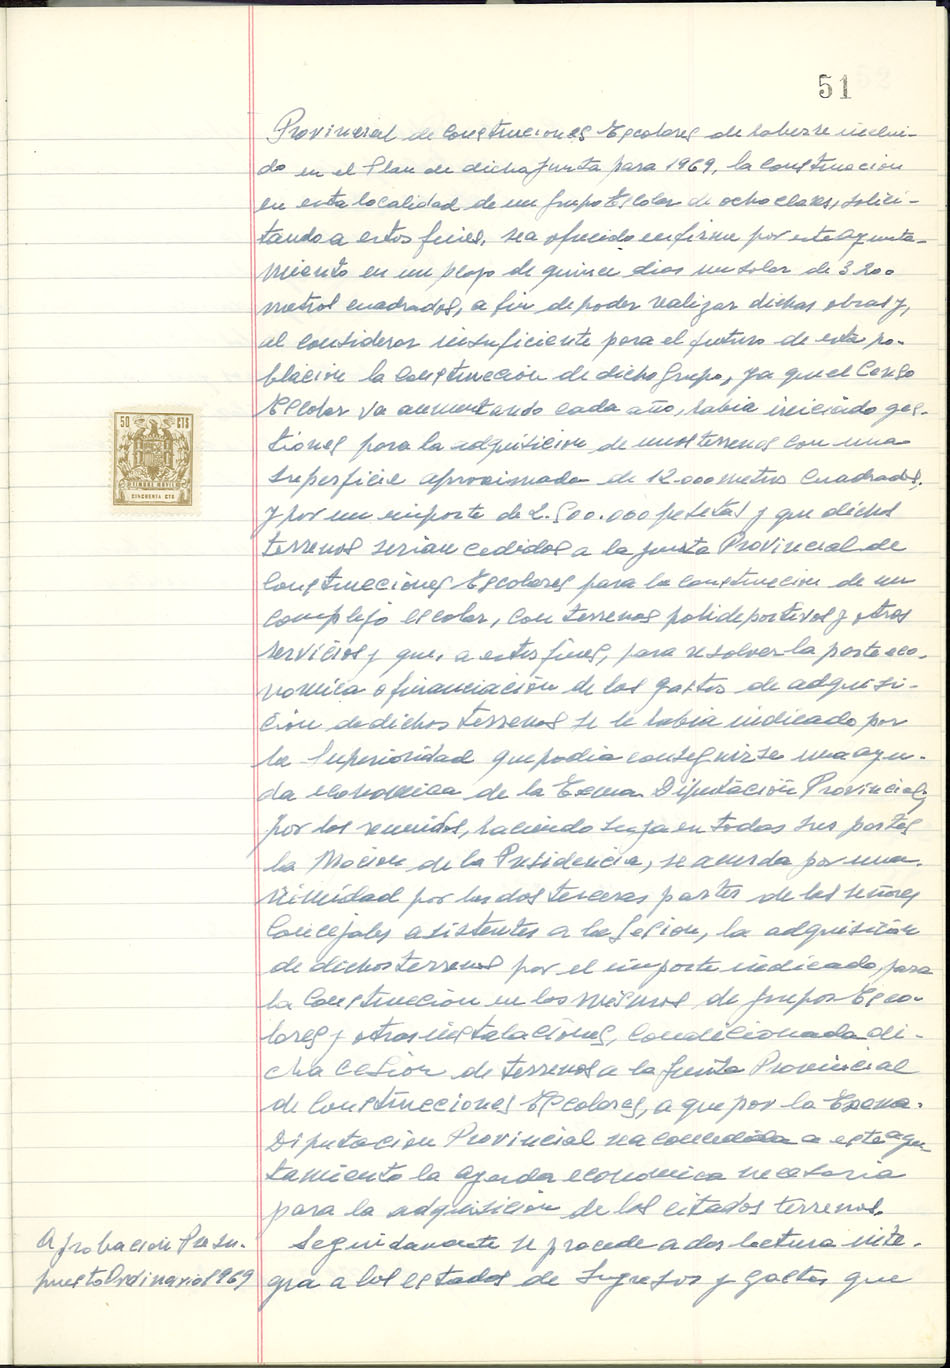 51
Provincial de Construcciones Escolares de haberse inclui-
do en el Plan de dicha Junta para 1969, la construcción
en esta localidad de un Grupo Escolar de ocho clases, solici-
tando a estos fines, sea ofrecido en firme por este Ayunta-
miento en un plazo de quince dias un solar de 3200
metros cuadrados, a fin de poder realizar dichas obras y,
al considerar insuficiente para el futuro de esta po-
blación la construcción de dicho Grupo, ya que el Censo
Escolar va aumentando cada año, habia iniciado ges-
tiones para la adquisicion de unos terrenos con una
superficie aproximada de 12.000 metros cuadrados,
y por un importe de 2.500.000 pesetas y que dichos
terrenos serian cedidos a la Junta Provincial de
Construcciones Escolares para la construcción de un
complejo escolar, con terrenos polideportivos y otros
servicios y que, a estos fines, para resolver la parte eco-
nomica o financiación de los gastos de adquisi-
ción de dichos terrenos se le habia indicado por
la Superioridad que podia conseguirse una ayu-
da economica de la Excma. Diputación Provincial,
por los reunidos, haciendo suya en todas sus partes
la Moción de la Presidencia, se acuerda por una-
nimidad por las dos terceras partes de los señores
Concejales asistentes a la Sesion, la adquisición
de dichos terrenos por el importe indicado, para
la Construcción en los mismos de Grupos Esco-
lares y otras instalaciones, condicionada di-
cha cesion de terrenos a la Junta Provincial
de Construcciones Escolares, a que por la Excma.
Diputacion Provincial sea concedida a este Ayun
tamiento la ayuda economica necesaria
para la adquisicion de los citados terrenos.
Aprobacion Presu-
puesto Ordinario 1969
Seguidamente se procede a dar lectura inte-
gra a los estados de Ingresos y Gastos que
50 CTS
TIMBRE MOVIL
CINCUENTA CTS